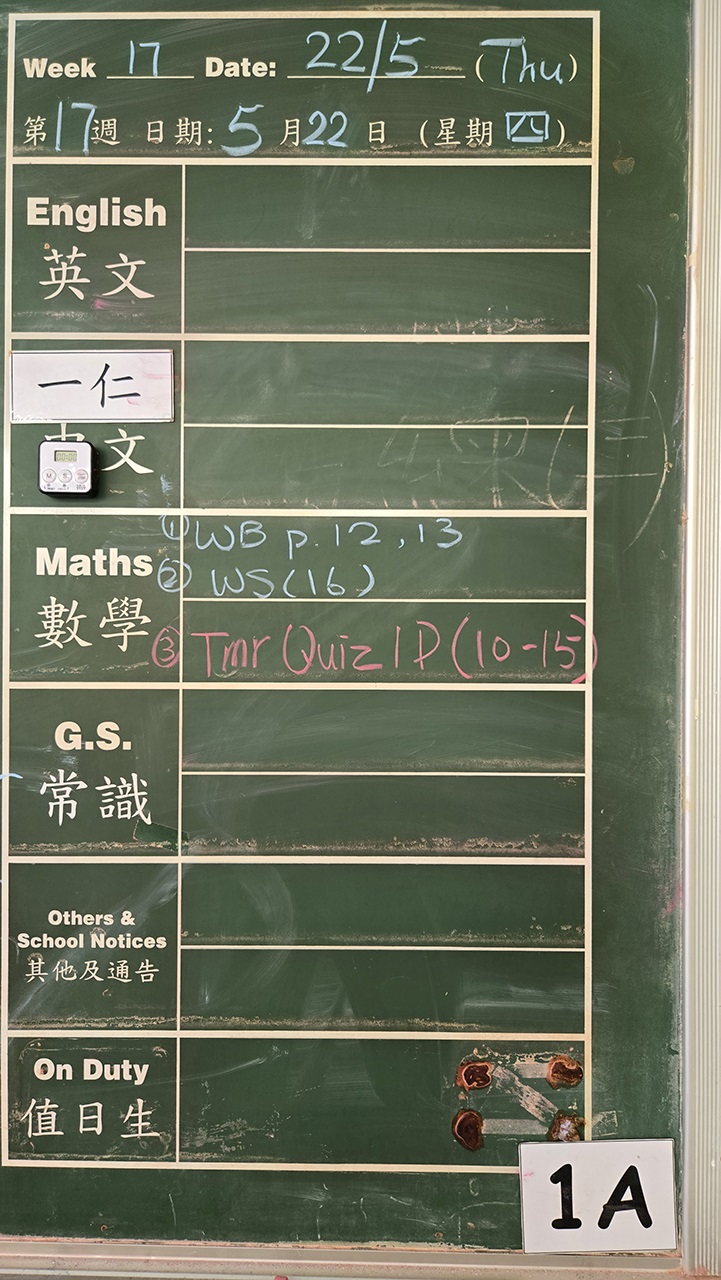 Week 17 Date: 22/5 (Thu)
第17週 日期: 5月22日 (星期四)
English
英文
一仁
文
00:00
Maths
數學
① WB p.12,13
② WS(16)
③ Tmr Quiz 1P(10-15)
G.S.
常識
Others &
School Notices
其他及通告
On Duty
值日生
1A